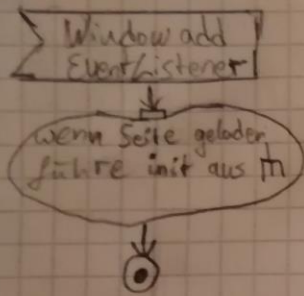 Window add
EventListener
wenn Seite geladen
führe init aus